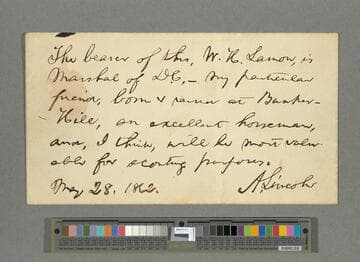 The bearer of this, W. H. Lamon, is
Marshal of D.C, — My particular
friend, born & raised at Bunker-
Hill, an excellent horseman,
and, I think, will be most valu-
able for scouting purposes.
May 28, 1862.  A Lincoln